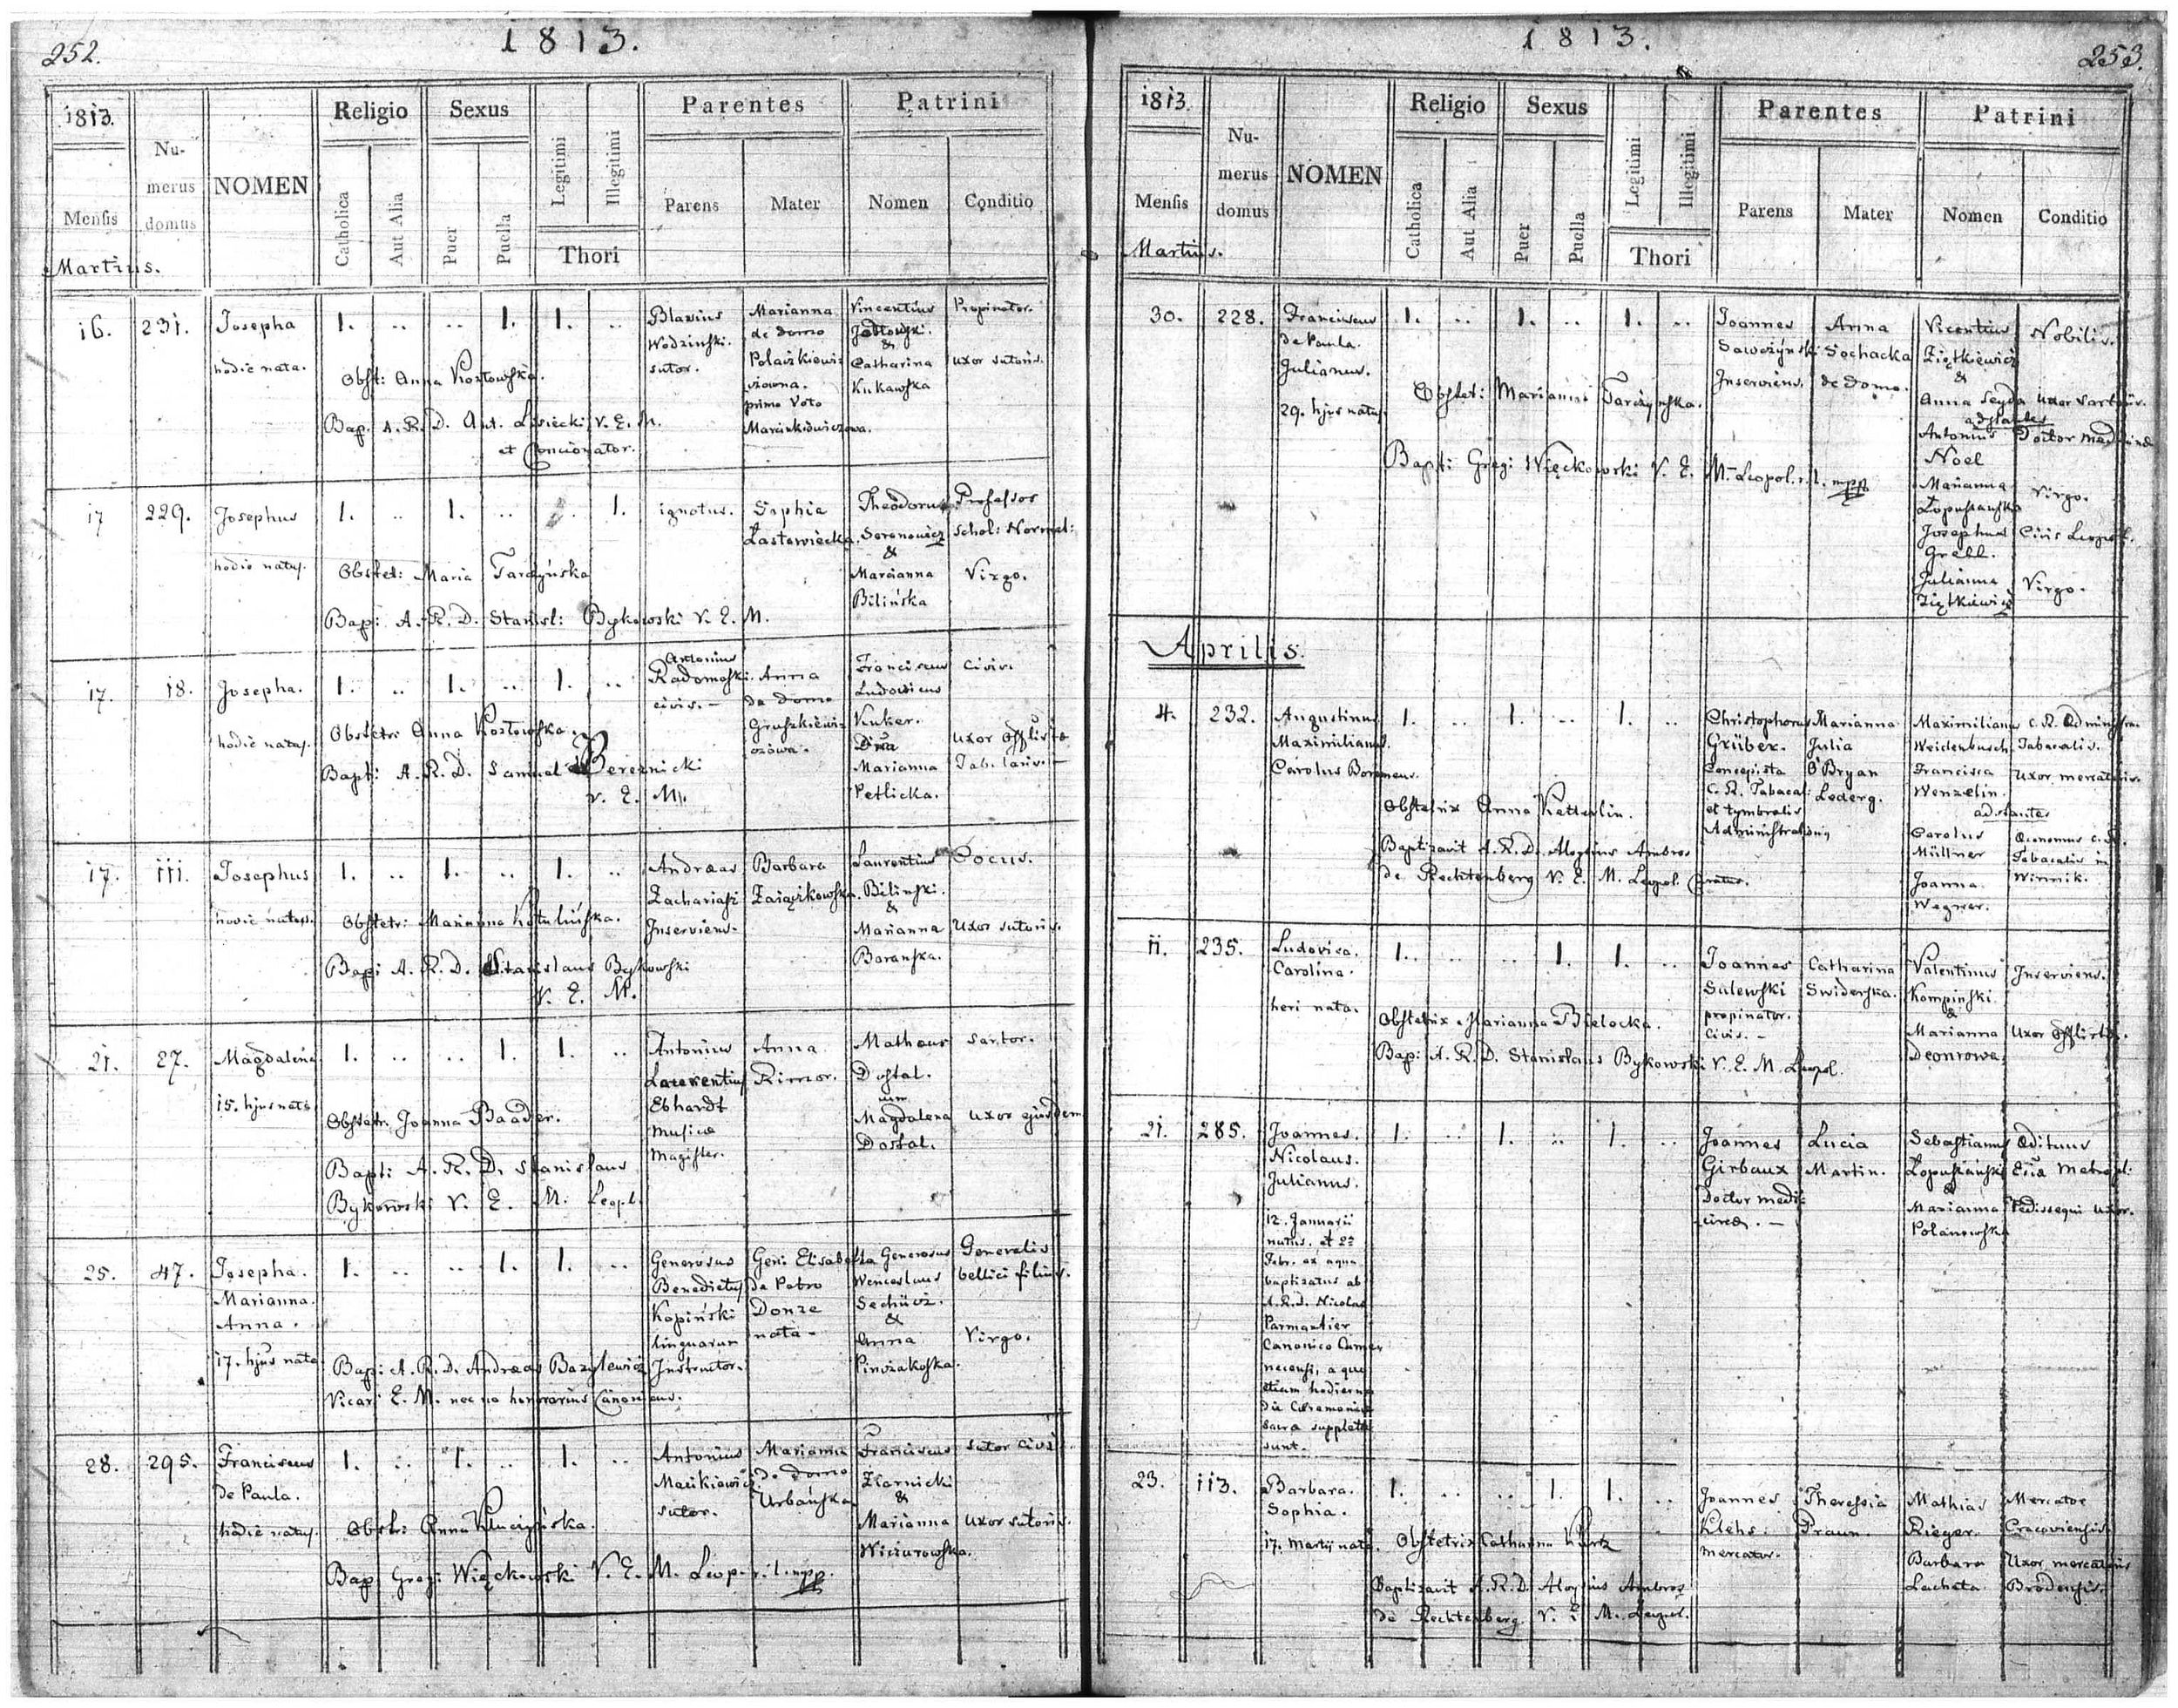 252.
1813.
1813.
Mensis
Martius.
Numerus domus
NOMEN
Religio
Catholica
Aut Alia
Sexus
Puer
Puella
Legitimi
Illegitimi
Thori
Parentes
Parens
Mater
Patrini
Nomen
Conditio
16. 231. Josepha 1. .. .. 1. 1. .. Blasius Marianna Vincentius Propinator.
hodie nata.
Wodzinski. de domo
sutor.
primo voto
&
Catharina uxor sutoris.
Kukawska
Obst: Anna Kozłowska.
Bap. A. R. D. Ant. Lisiecki V. E. M.
et Concionator.
17 229. Josephus 1. .. 1. .. 1. ignotus. Sophia Theodorus Professor
Schol: Normal:
&
Marianna Virgo.
Bilińska
hodie natus.
Obstet: Maria Tarczyńska
Bap: A. R. D. Stanisl: Bykowski V. E. M.
17. 18. Josepha. 1. .. 1. .. 1. .. Antonius Anna Franciscus civis.
Radomski. de domo Ludovicus
civis. Kuker.
hodie natus.
Marianna
Petlicka.
Obstetr: Anna Kozłowska.
Bapt: A. R. D. Samuel Bereznicki
V. E. M.
17. 111. Josephus 1. .. 1. .. 1. .. Andreas Barbara Laurentius Cocus.
Zachariasz Zaiączkowska. Bilinski.
&
Inserviens. Marianna Uxor sutoris.
Baranska.
hodie natus.
Bap: A. R. D. Stanislaus Bykowski
V. E. M.
21. 27. Magdalena 1. .. .. 1. 1. .. Antonius Anna Matheus sartor.
Laurentius Rimor. Dostal.
Ebhardt
Musicae Magdalena uxor ejusdem
Magister. Dostal.
15. hjus nata
Obstetr. Joanna Baader.
Bapt: A. R. D. Stanislaus
Bykowski V. E. M. Leopl.
25. 47. Josepha. 1. .. .. 1. 1. .. Generosus Gen: Elisabetha Generosus Generalis
Marianna. Benedictus de Petro Wenceslaus bellici filius.
Anna. Kopiński Donze
linguarum nata &
Instructor. Anna Virgo.
17. hjus nata
Bap: A. R. D. Andreas Bazylewicz
Vicari E. M. nec no honorarius Canonicus.
28. 295. Franciscus 1. .. 1. .. 1. .. Antonius Marianna Franciscus sutor civis
de Paula. de domo
sutor. Urbańska &
hodie natus. Marianna uxor sutoris.
Bap: Greg: Więckowski V. E. M. Leop. r. l. mpp.
1813.
253.
1813.
Mensis
Martius.
Numerus domus
NOMEN
Religio
Catholica
Aut Alia
Sexus
Puer
Puella
Legitimi
Illegitimi
Thori
Parentes
Parens
Mater
Patrini
Nomen
Conditio
30. 228. Franciscus 1. .. 1. .. 1. .. Joannes Anna Vicentius Nobilis.
de Paula. Sochacka Ziętkiewicz
Julianus. Inserviens. de domo. &
29. hjus natus. Anna Seyda uxor sartoris.
adstantes
Antonius Doctor medicinae
Noel
Marianna Virgo.
Łopuszańska
Josephus Civis Leopol.
Grell.
Julianna Virgo.
Ziętkiewicz
Obstet: Marianna Tarczynska.
Bapt: Greg: Więckowski V. E. M. Leopol. r. l. mpp
Aprilis.
4. 232. Augustinus 1. .. 1. .. 1. .. Christophorus Marianna Maximilianus
Maximilianus. Grüber. Julia Weidenbusch Tabacalis.
Carolus Boromeus. Concepista O'Bryan Francisca Uxor mercatoris.
C. R. Tabacal: Lederg. Wenzelin.
et tymbralis adstantes
Administrationis Carolus Oeconomus c. R.
Müllner Tabacalis in
Joanna Winnik.
Wegner.
Obstetrix Anna Ketterlin.
Baptizavit A. R. D. Aloysius Ambros
de Rechtenberg V. E. M. Leopol. Curatus.
11. 235. Ludovica. 1. .. .. 1. 1. .. Joannes Catharina Valentinus Inserviens.
Carolina. Salewski Swiderska. Kompinski
propinator. &
heri nata. Civis. Marianna
Obstetrix Marianna Bielocka.
Bap: A. R. D. Stanislaus Bykowski V. E. M. Leopol.
21. 285. Joannes. 1. .. 1. .. 1. .. Joannes Lucia Sebastianus
Nicolaus. Girbaux Martin. Łopuszański
Julianus. Doctor medi- &
cinae. Marianna Pedissequi uxor.
Polanowska
12. Januarii
natus. et 2ª
Febr. ex aqua
baptizatus ab
A. R. D. Nicolas
Parmantier
Canonico
a quo
etiam hodierna
die Ceremoniae
sacra suppletae
sunt.
23. 113. Barbara. 1. .. .. 1. 1. .. Joannes Theressia Mathias Mercator
Sophia. Klehs: Praun. Rieger. Cracoviensis
mercator. Barbara Uxor mercatoris
17. Martij nata. Lacheta Brodensis.
Obstetrix Catharina Kurtz
Baptizavit A. R. D. Aloysius Ambros
de Rechtenberg V. E. M. Leopol.